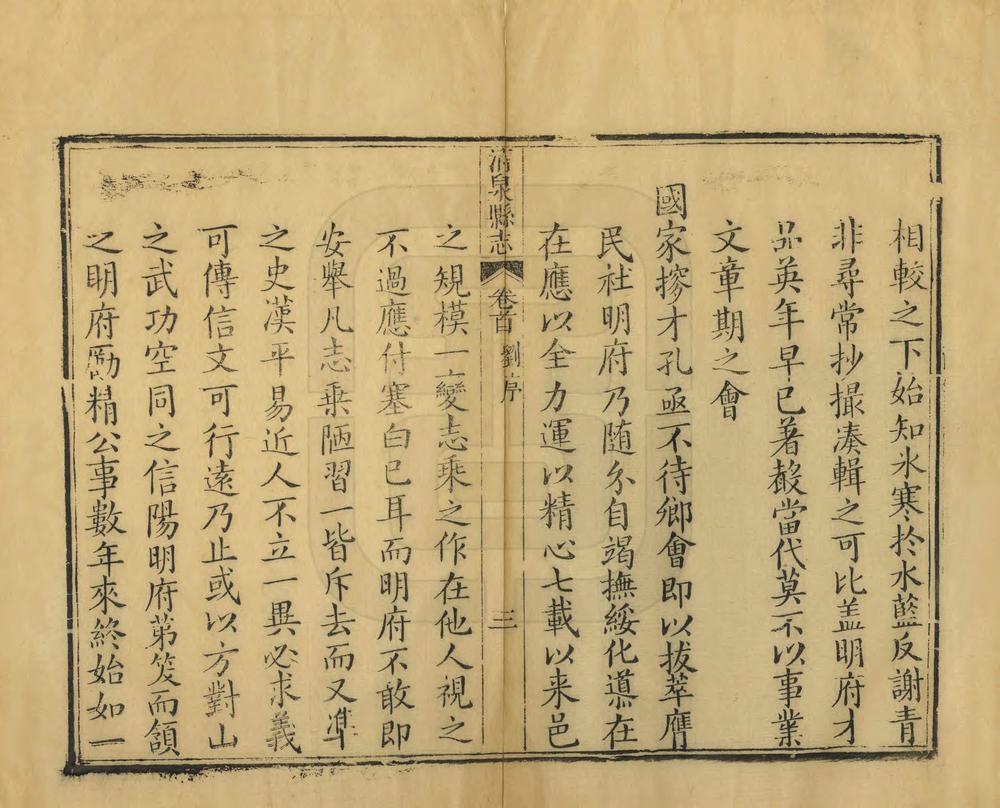 相較之下始知氷寒於水藍反謝青
非尋常抄撮湊輯之可比盖明府才
品英年早已著殽當代莫不以事業
文章期之會
國家掄才孔亟不待鄉會即以拔萃膺
民社明府乃随分自竭撫綏化導在
在應以全力運以精心七載以来邑
清泉縣志 卷首 劉序 三
之規模一變志乗之作在他人視之
不過應付塞白已耳而明府不敢即
安舉凡志乗陋習一皆斥去而又凖
之史漢平易近人不立一異必求義
可傳信文可行遠乃止或以方對山
之武功空同之信陽明府第笑而頷
之明府勵精公事數年來終始如一